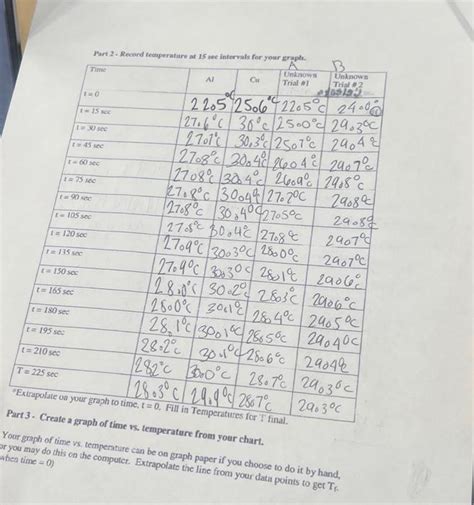 Part 2 - Record temperature at 15 sec intervals for your graph.
A B
Time Al Cu Unknown Trial #1 Unknown Trial # 2
t = 0 22.5°C 25.6°C 22.5°C 24.0
t = 15 sec 27.6°C 30°C 25.0°C 29.3°C
t = 30 sec 27.7°C 30.3°C 25.7°C 29.4°C
t = 45 sec 27.8°C 30.4°C 26.4°C 29.7°C
t = 60 sec 27.8°C 30.4°C 26.9°C 29.8°C
t = 75 sec 27.8°C 30.4°C 27.2°C 29.8°C
t = 90 sec 27.8°C 30.4°C 27.5°C 29.8°C
t = 105 sec 27.8°C 30.4°C 27.8°C 29.7°C
t = 120 sec 27.9°C 30.3°C 28.0°C 29.7°C
t = 135 sec 27.9°C 30.3°C 28.1°C 29.6°C
t = 150 sec 28.0°C 30.2°C 28.3°C 29.6°C
t = 165 sec 28.0°C 30.1°C 28.4°C 29.5°C
t = 180 sec 28.1°C 30.1°C 28.5°C 29.4°C
t = 195 sec 28.2°C 30.1°C 28.6°C 29.4°C
t = 210 sec 282°C 30.0°C 28.7°C 29.3°C
T = 225 sec 28.3°C 29.9°C 28.7°C 29.3°C
*Extrapolate on your graph to time, t = 0. Fill in Temperatures for T final.
Part 3 - Create a graph of time vs. temperature from your chart.
Your graph of time vs. temperature can be on graph paper if you choose to do it by hand,
or you may do this on the computer. Extrapolate the line from your data points to get Tf.
when time = 0)